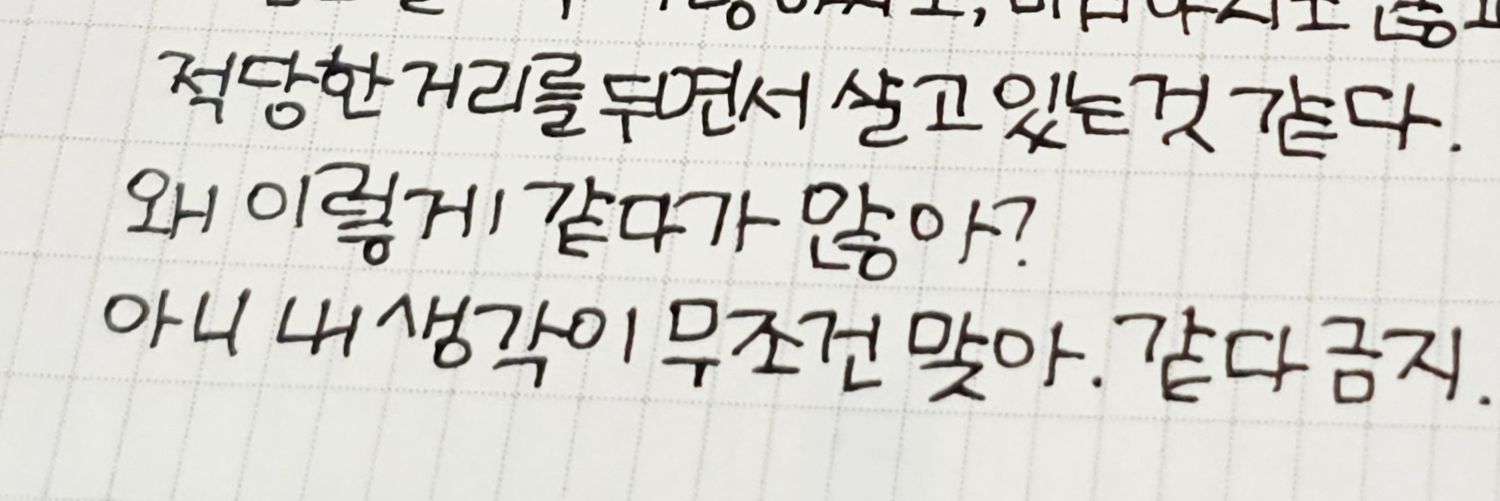 적당한 거리를 두면서 살고 있는 것 같다.
왜 이렇게 같다가 많아?
아니 내 생각이 무조건 맞아. 같다 금지.